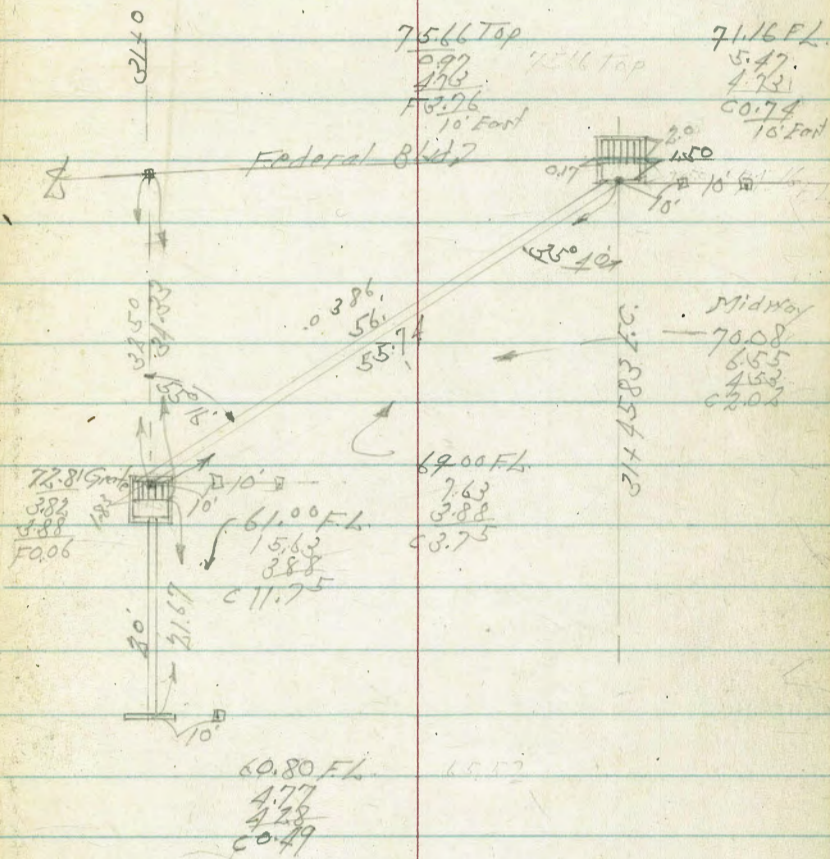 31+0
75.66 Top
0.97
4.73
F 3.76
10' East
71.16 FL
5.47
4.73
C 0.74
10' East
Federal Bldg
2.0
1.50
0.17
10'
10'
55° 40'
38.50
34.33
.0386
56.
55.74
55° 18'
31+45.83 E.C.
Midway
70.08
6.55
4.53
C 2.02
72.81 Grate
3.82
3.88
F 0.06
1.83
10'
10'
61.00 FL
15.63
3.88
C 11.75
69.00 FL
7.63
3.88
C 3.75
20'
21.67
10'
60.80 FL
4.77
4.28
C 0.49
65.52